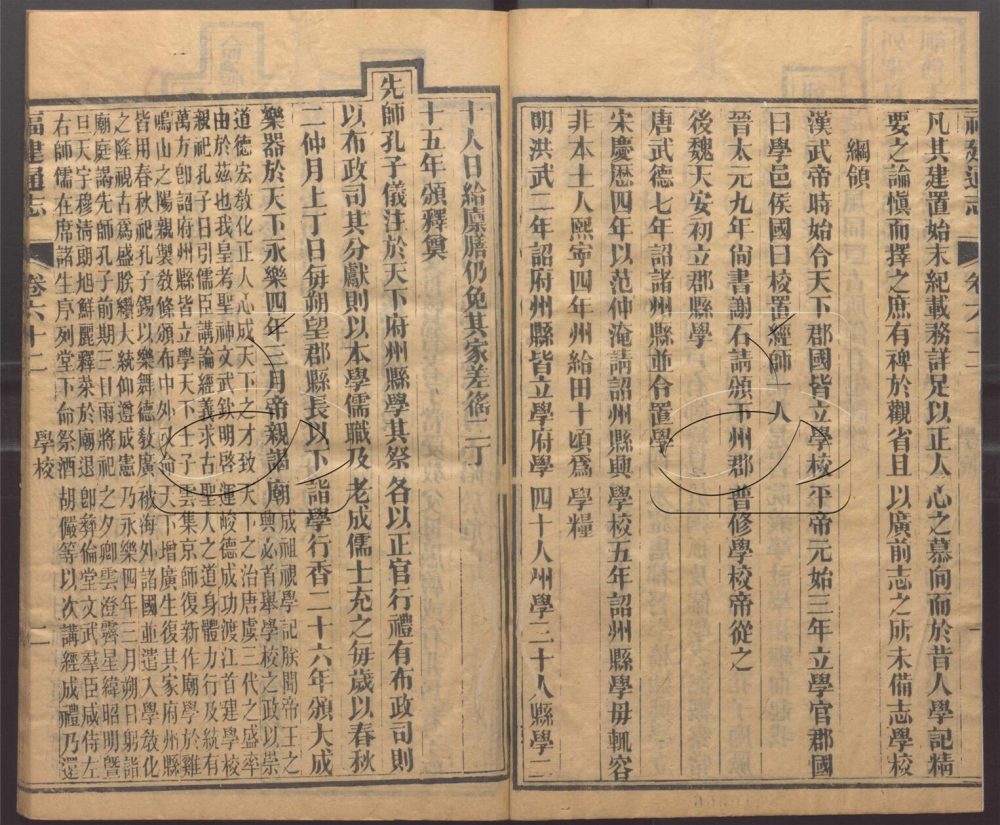 福建通志 卷六十二 一
凡其建置始末紀載務詳足以正人心之慕向而於昔人學記精
要之論慎而擇之庶有裨於觀省且以廣前志之所未備志學校
綱領
漢武帝時始令天下郡國皆立學校平帝元始三年立學官郡國
曰學邑侯國曰校置經師一人
晉太元九年尙書謝石請頒下州郡普修學校帝從之
後魏天安初立郡縣學
唐武德七年詔諸州縣並令置學
宋慶歷四年以范仲淹請詔州縣興學校五年詔州縣學毋輒容
非本土人熙寧四年州給田十頃爲學糧
明洪武二年詔府州縣皆立學府學四十人州學二十人縣學二
十人日給廩膳仍免其家差徭二丁
十五年頒釋奠
先師孔子儀注於天下府州縣學其祭各以正官行禮有布政司則
以布政司其分獻則以本學儒職及老成儒士充之每歲以春秋
二仲月上丁日每朔望郡縣長以下詣學行香二十六年頒大成
樂器於天下永樂四年三月帝親謁廟
成祖視學記朕聞帝王之
典必首舉學校之政以崇
道德宏敎化正人心成天下之才致天下之治唐虞三代之盛率
由於茲也我皇考聖神文武欽明啓運峻德成功渡江首建學校
親祀孔子日引儒臣講論經義求古聖人之道身體力行及統有
萬方卽詔府州縣皆立學天下士子雲集京師復新作廟學於雞
鳴山之陽親製敎條頒布中外命天下增廣生復其家府州縣
皆用春秋祀孔子錫以樂舞德敎廣被海外諸國並遣入學敎化
之隆視古爲盛朕纘大統仰遵成憲乃永樂四年三月朔日躬詣
廟庭謁先師孔子前期三日雨將祀之夕卿雲澄霽星緯昭明曁
旦天宇穆淸朝旭鮮麗釋菜於廟退卽彝倫堂文武羣臣咸侍左
右師儒在席諸生序列堂下命祭酒胡儼等以次講經成禮乃還
福建通志 卷六十二 學校 二